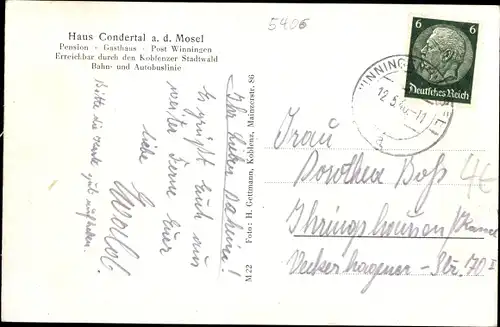 5406
Haus Condertal a. d. Mosel
Pension - Gasthaus - Post Winningen
Erreichbar durch den Koblenzer Stadtwald
Bahn- und Autobuslinie
6 6
Deutsches Reich
WINNINGEN
12.5.40.-11
a
Ihr lieben Daheim!
Es grüßt Euch aus
weiter Ferne Euer
liebe
Ewald
Bitte die Karte gut aufheben.
M 22 Foto: H. Gettmann, Koblenz, Mainzerstr. 86
Frau
Dorothea Boß
Ihringshausen/Kassel
Veckerhagener-Str. 70 I
4€